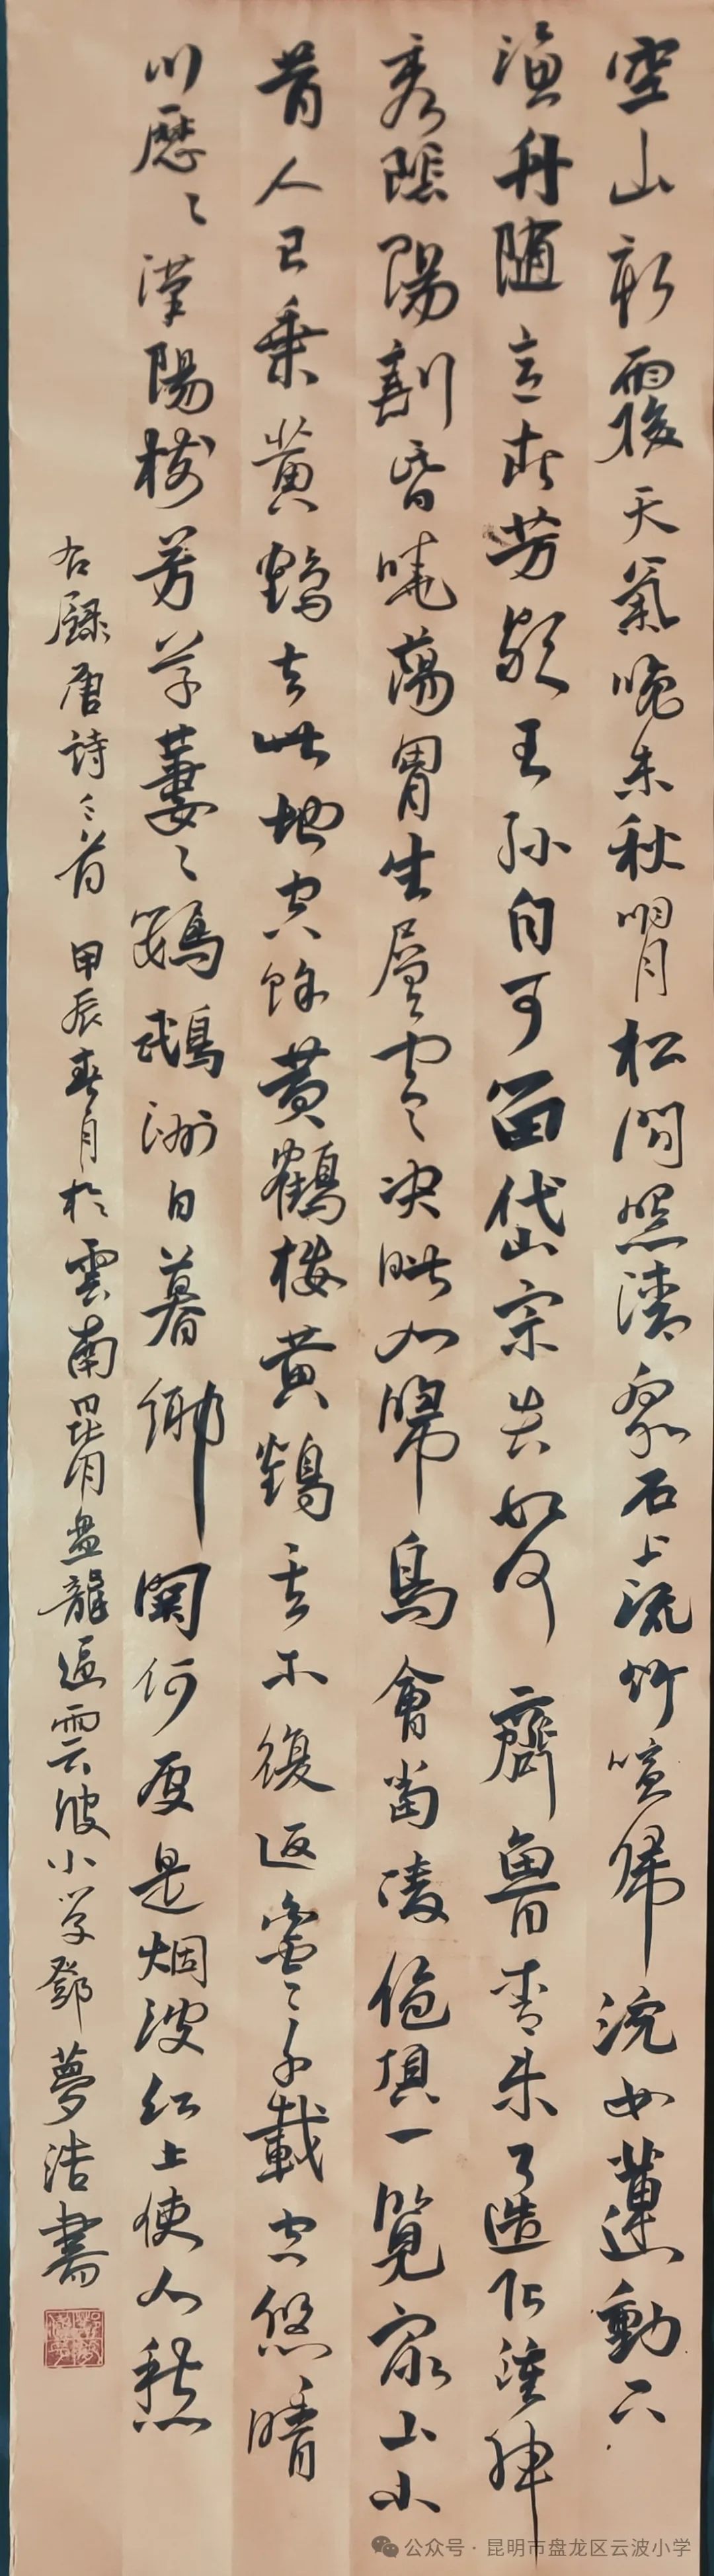 空山新雨後天氣晚來秋明月松間照清泉石上流竹喧歸浣女蓮動下
漁舟隨意春芳歇王孫自可留岱宗夫如何齊魯青未了造化鍾神
秀陰陽割昏曉蕩胸生層雲決眥入歸鳥會當凌絕頂一覽眾山小
昔人已乘黃鶴去此地空餘黃鶴樓黃鶴一去不復返白雲千載空悠悠晴
川歷々漢陽樹芳草萋々鸚鵡洲日暮鄉關何處是烟波江上使人愁
右錄唐詩三首 甲辰春月於雲南昆明盤龍區雲波小學鄧夢浩書
公众号·昆明市盘龙区云波小学